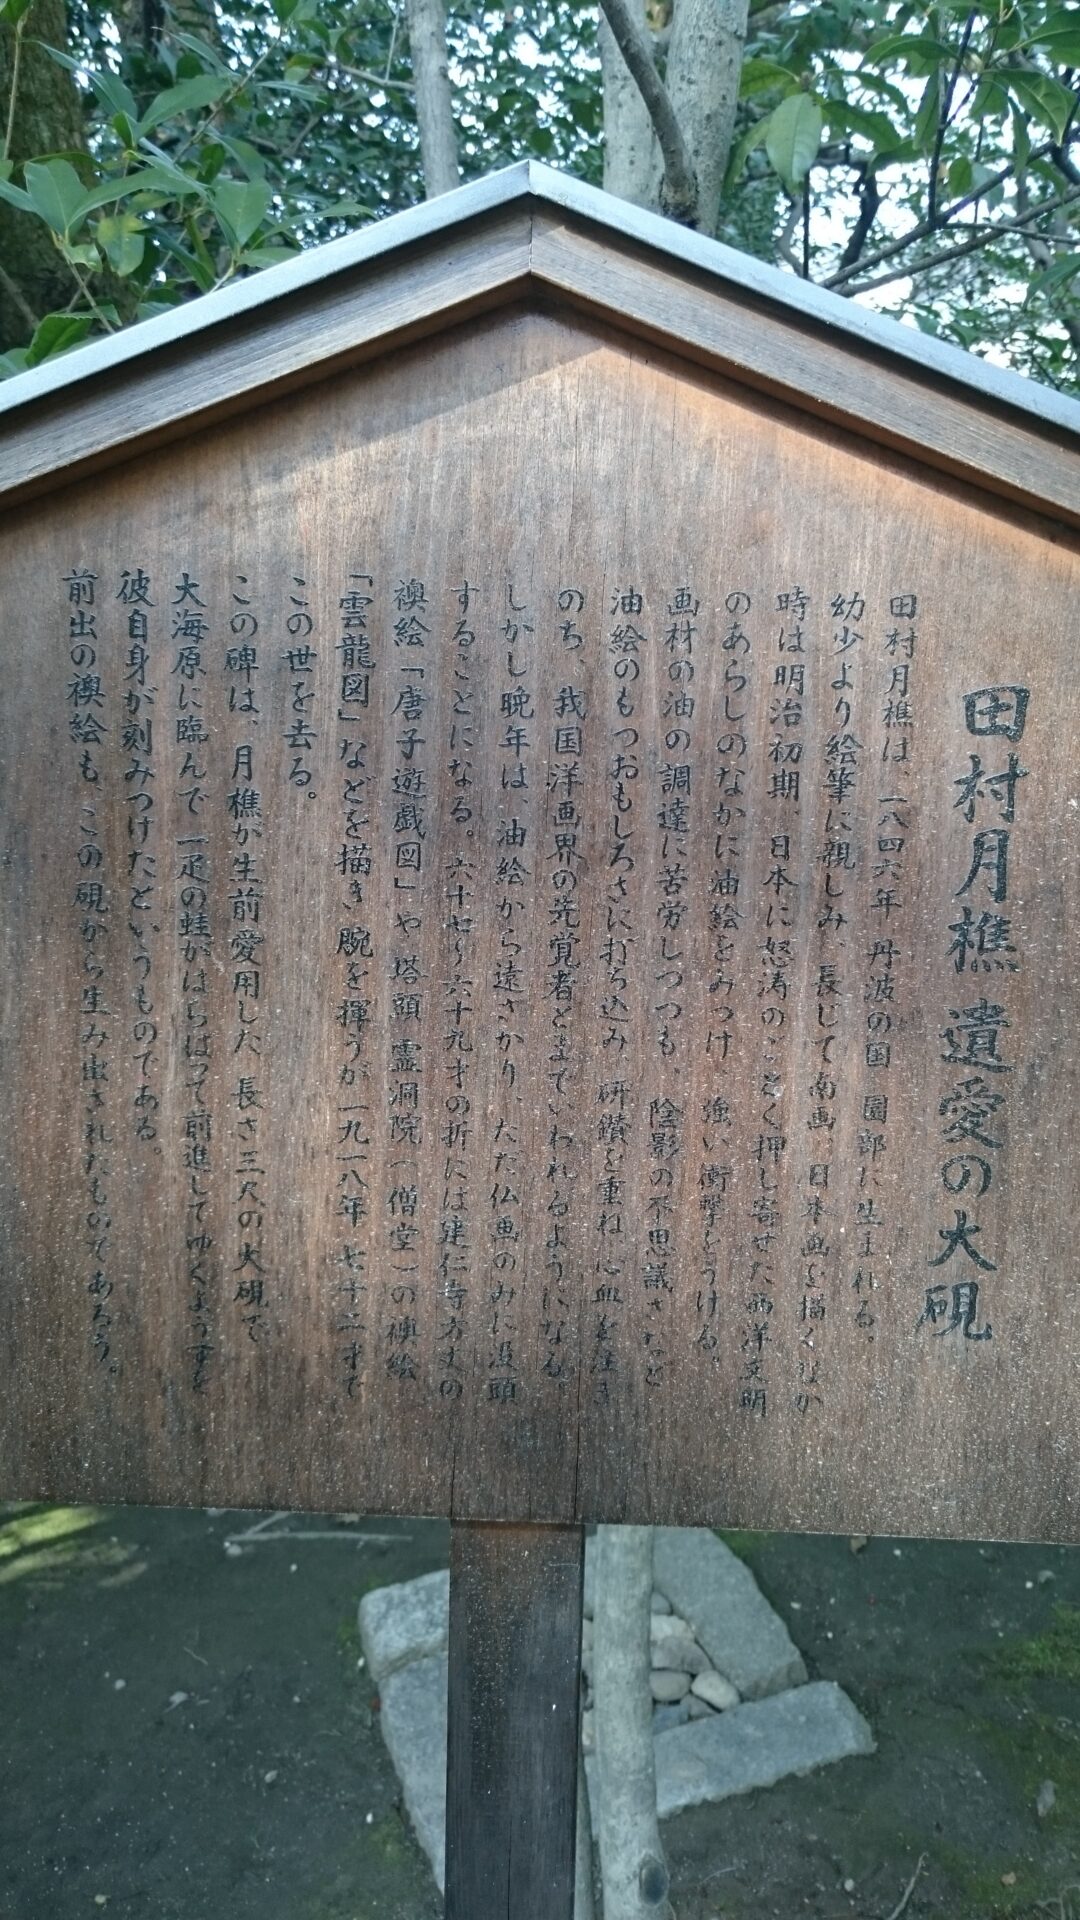 田村月樵 遺愛の大硯
田村月樵は、一八四六年 丹波の国 園部に生まれる。
幼少より絵筆に親しみ、長じて南画、日本画を描くなか
時は明治初期 日本に怒涛のごとく押し寄せた西洋文明
のあらしのなかに油絵をみつけ 強い衝撃をうける。
画材の油の調達に苦労しつつも、陰影の不思議さなど
油絵のもつおもしろさに打ち込み 研鑚を重ね心血を注ぎ
のち、我国洋画界の先覚者とまでいわれるようになる。
しかし晩年は、油絵から遠ざかり、ただ仏画のみに没頭
することになる。六十七り六十九才の折には建仁寺方丈の
襖絵「唐子遊戯図」や 塔頭 霊洞院(僧堂)の襖絵
「雲龍図」などを描き 腕を揮うが 一九一八年 七十二才で
この世を去る。
この碑は、月樵が生前愛用した 長さ三尺の大硯で
大海原に臨んで 一疋の蛙がはらばって前進してゆくようすを
彼自身が刻みつけたというものである。
前出の襖絵も、この硯から生み出されたものであろう。